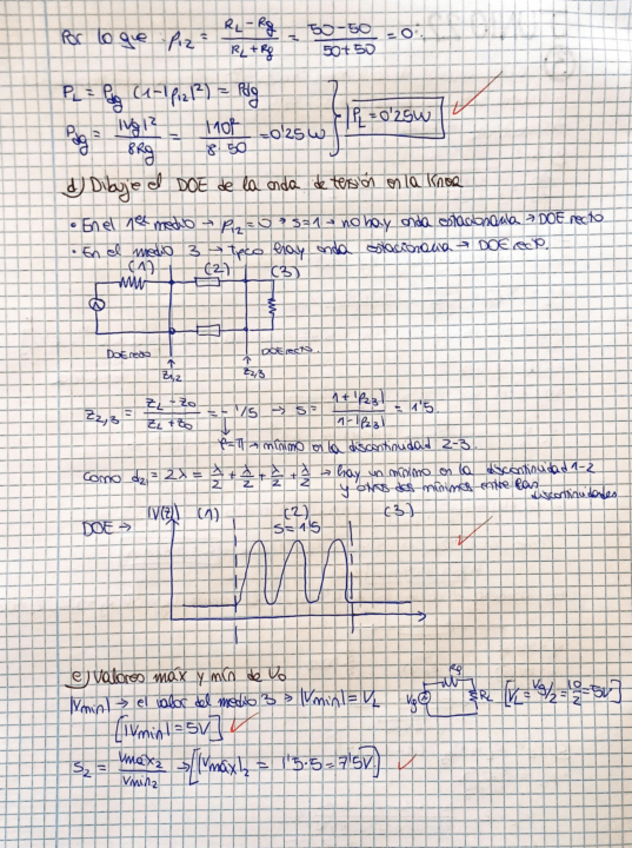 Por lo que: ρ12 = (RL - Rg)/(RL + Rg) = (50 - 50)/(50 + 50) = 0
PL = Pdg (1 - |ρ12|²) = Pdg
Pdg = |Vg|²/8Rg = |10|²/8·50 = 0'25W
PL = 0'25W
d) Dibuje el DOE de la onda de tensión en la línea
• En el 1er medio → ρ12 = 0 → s = 1 → no hay onda estacionaria → DOE recto
• En el medio 3 → Tpco hay onda estacionaria → DOE recto.
(1) (2) (3)
DOE recto DOE recto.
Z1,2 Z2,3
Z2,3 = (ZL - Z0)/(ZL + Z0) = - 1/5 → s = (1 + |ρ23|)/(1 - |ρ23|) = 1'5.
φ = π → mínimo en la discontinuidad 2-3.
Como d2 = 2λ = λ/2 + λ/2 + λ/2 + λ/2 → hay un máximo en la discontinuidad 1-2
y otros dos mínimos entre las
discontinuidades
DOE → |V(z)| (1) (2) (3)
s = 1'5
e) Valores máx y mín de V0
|Vmin| → el valor del medio 3 → |Vmin| = VL
Vg Rg RL [VL = Vg/2 = 10/2 = 5V]
[|Vmin| = 5V]
S2 = Vmax2/Vmin2 → [|Vmáx|2 = 1'5·5 = 7'5V]